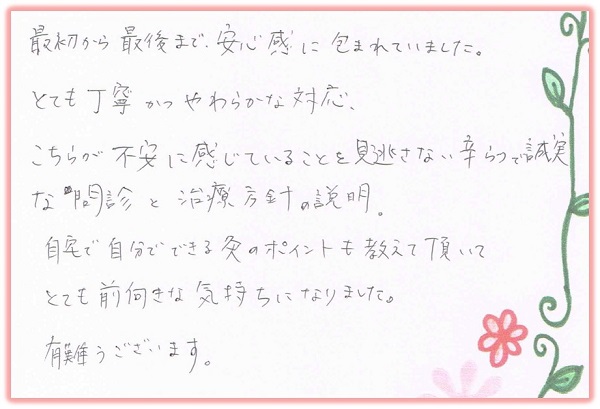 最初から最後まで、安心感に包まれていました。
とても丁寧かつやわらかな対応、
こちらが不安に感じていることを見逃さない辛らつで誠実
な問診と治療方針の説明。
自宅で自分でできる灸のポイントも教えて頂いて
とても前向きな気持ちになりました。
有難うございます。